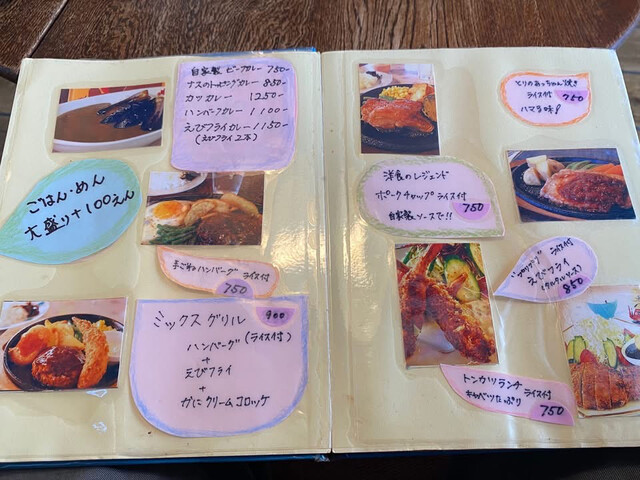 自家製 ビーフカレー 750-
ナスのトッピングカレー 850-
カツカレー 1250-
ハンバーグカレー 1100-
えびフライカレー 1150-
(えびフライ2本)
ごはん・めん
大盛り+100えん
手ごねハンバーグ ライス付
750
ミックスグリル 900
ハンバーグ(ライス付)
+
えびフライ
+
かにクリームコロッケ
とりのあっちゃん焼き
ライス付 750
ハマる味!
洋食のレジェンド
ポークチャップ ライス付
750
自家製ソースで!!
ライス付
えびフライ
(タルタルソース)
850
トンカツランチ ライス付
キャベツたっぷり
750